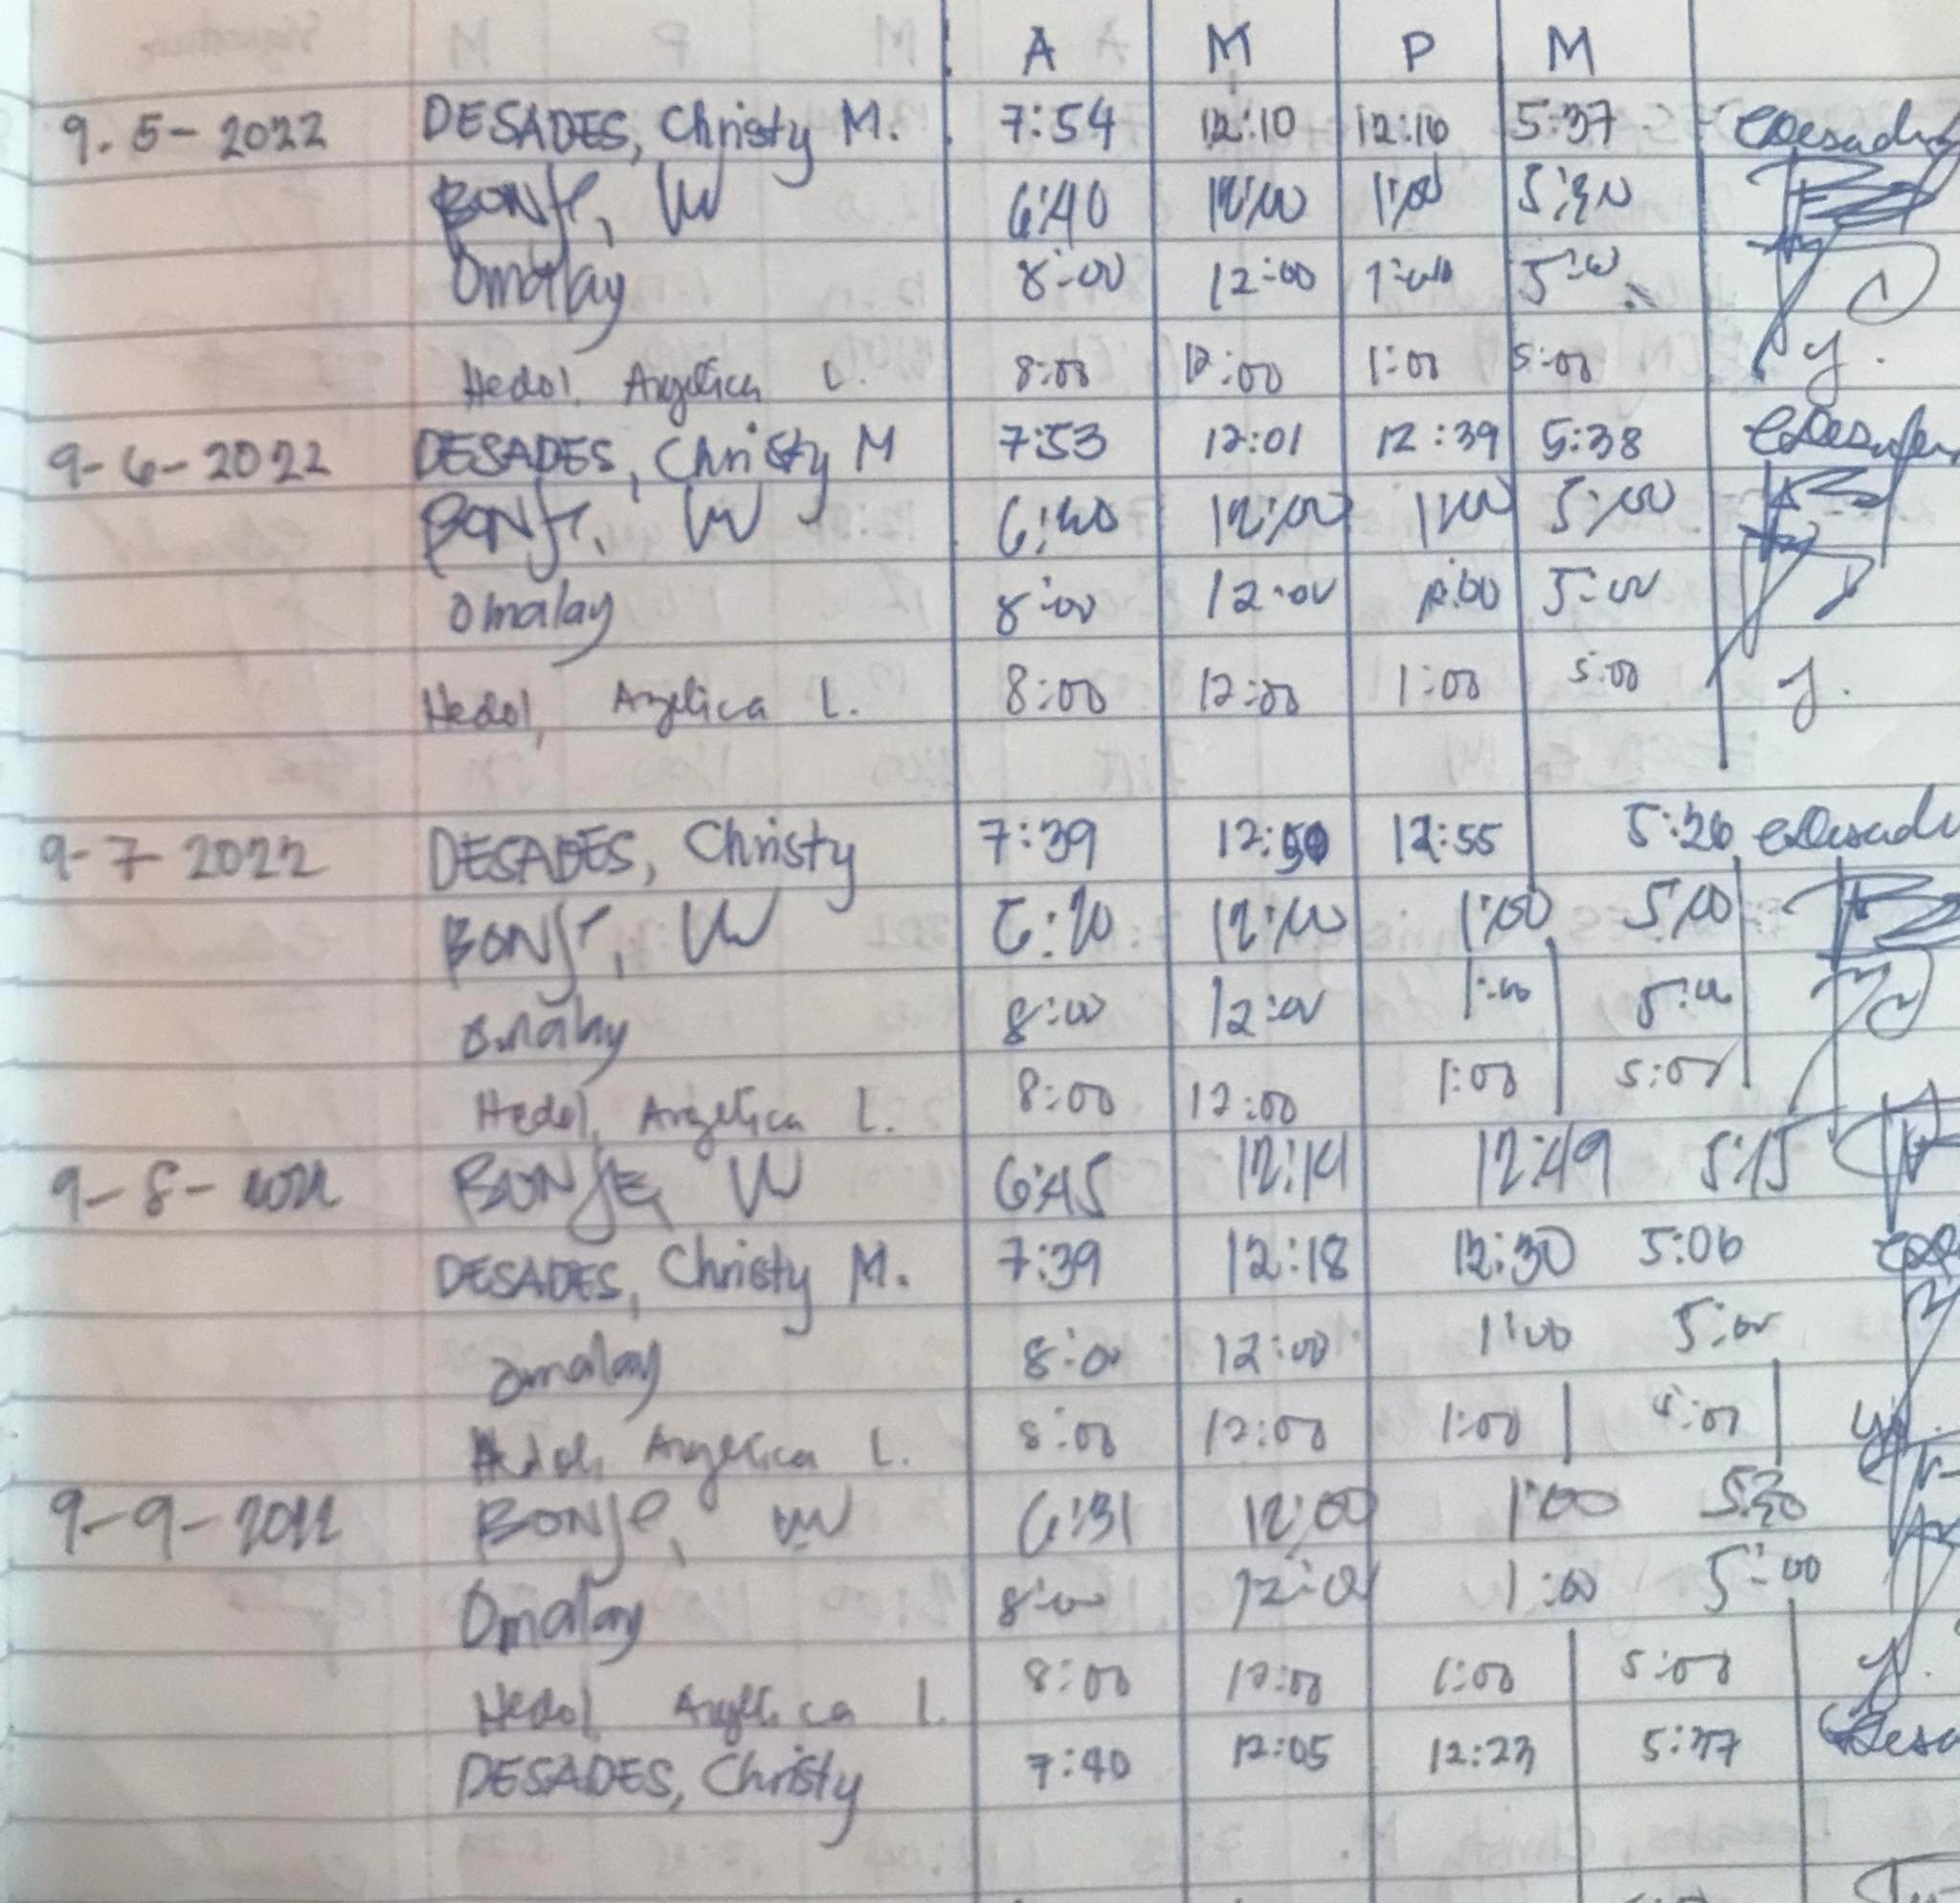 A M P M
9-5-2022 DESADES, Christy M. 7:54 12:10 12:16 5:37
BONJE, W 6:40 12:00 1:00 5:30
Omalay 8:00 12:00 1:00 5:00
Hedol, Angelica L. 8:00 12:00 1:00 5:00
9-6-2022 DESADES, Christy M 7:53 12:01 12:39 5:38
BONJE, W 6:40 12:00 1:00 5:00
Omalay 8:00 12:00 1:00 5:00
Hedol, Angelica L. 8:00 12:00 1:00 5:00
9-7-2022 DESADES, Christy 7:39 12:50 12:55 5:26
BONJE, W 6:20 12:00 1:00 5:00
Omalay 8:00 12:00 1:00 5:00
Hedol, Angelica L. 8:00 12:00 1:00 5:00
9-8-2022 BONJE, W 6:45 12:14 12:49 5:15
DESADES, Christy M. 7:39 12:18 12:30 5:06
Omalay 8:00 12:00 1:00 5:00
Hedol, Angelica L. 8:00 12:00 1:00
9-9-2022 BONJE, W 6:31 12:00 1:00 5:30
Omalay 8:00 12:00 1:00 5:00
Hedol, Angelica L. 8:00 12:00 1:00 5:00
DESADES, Christy 7:40 12:05 12:23 5:37